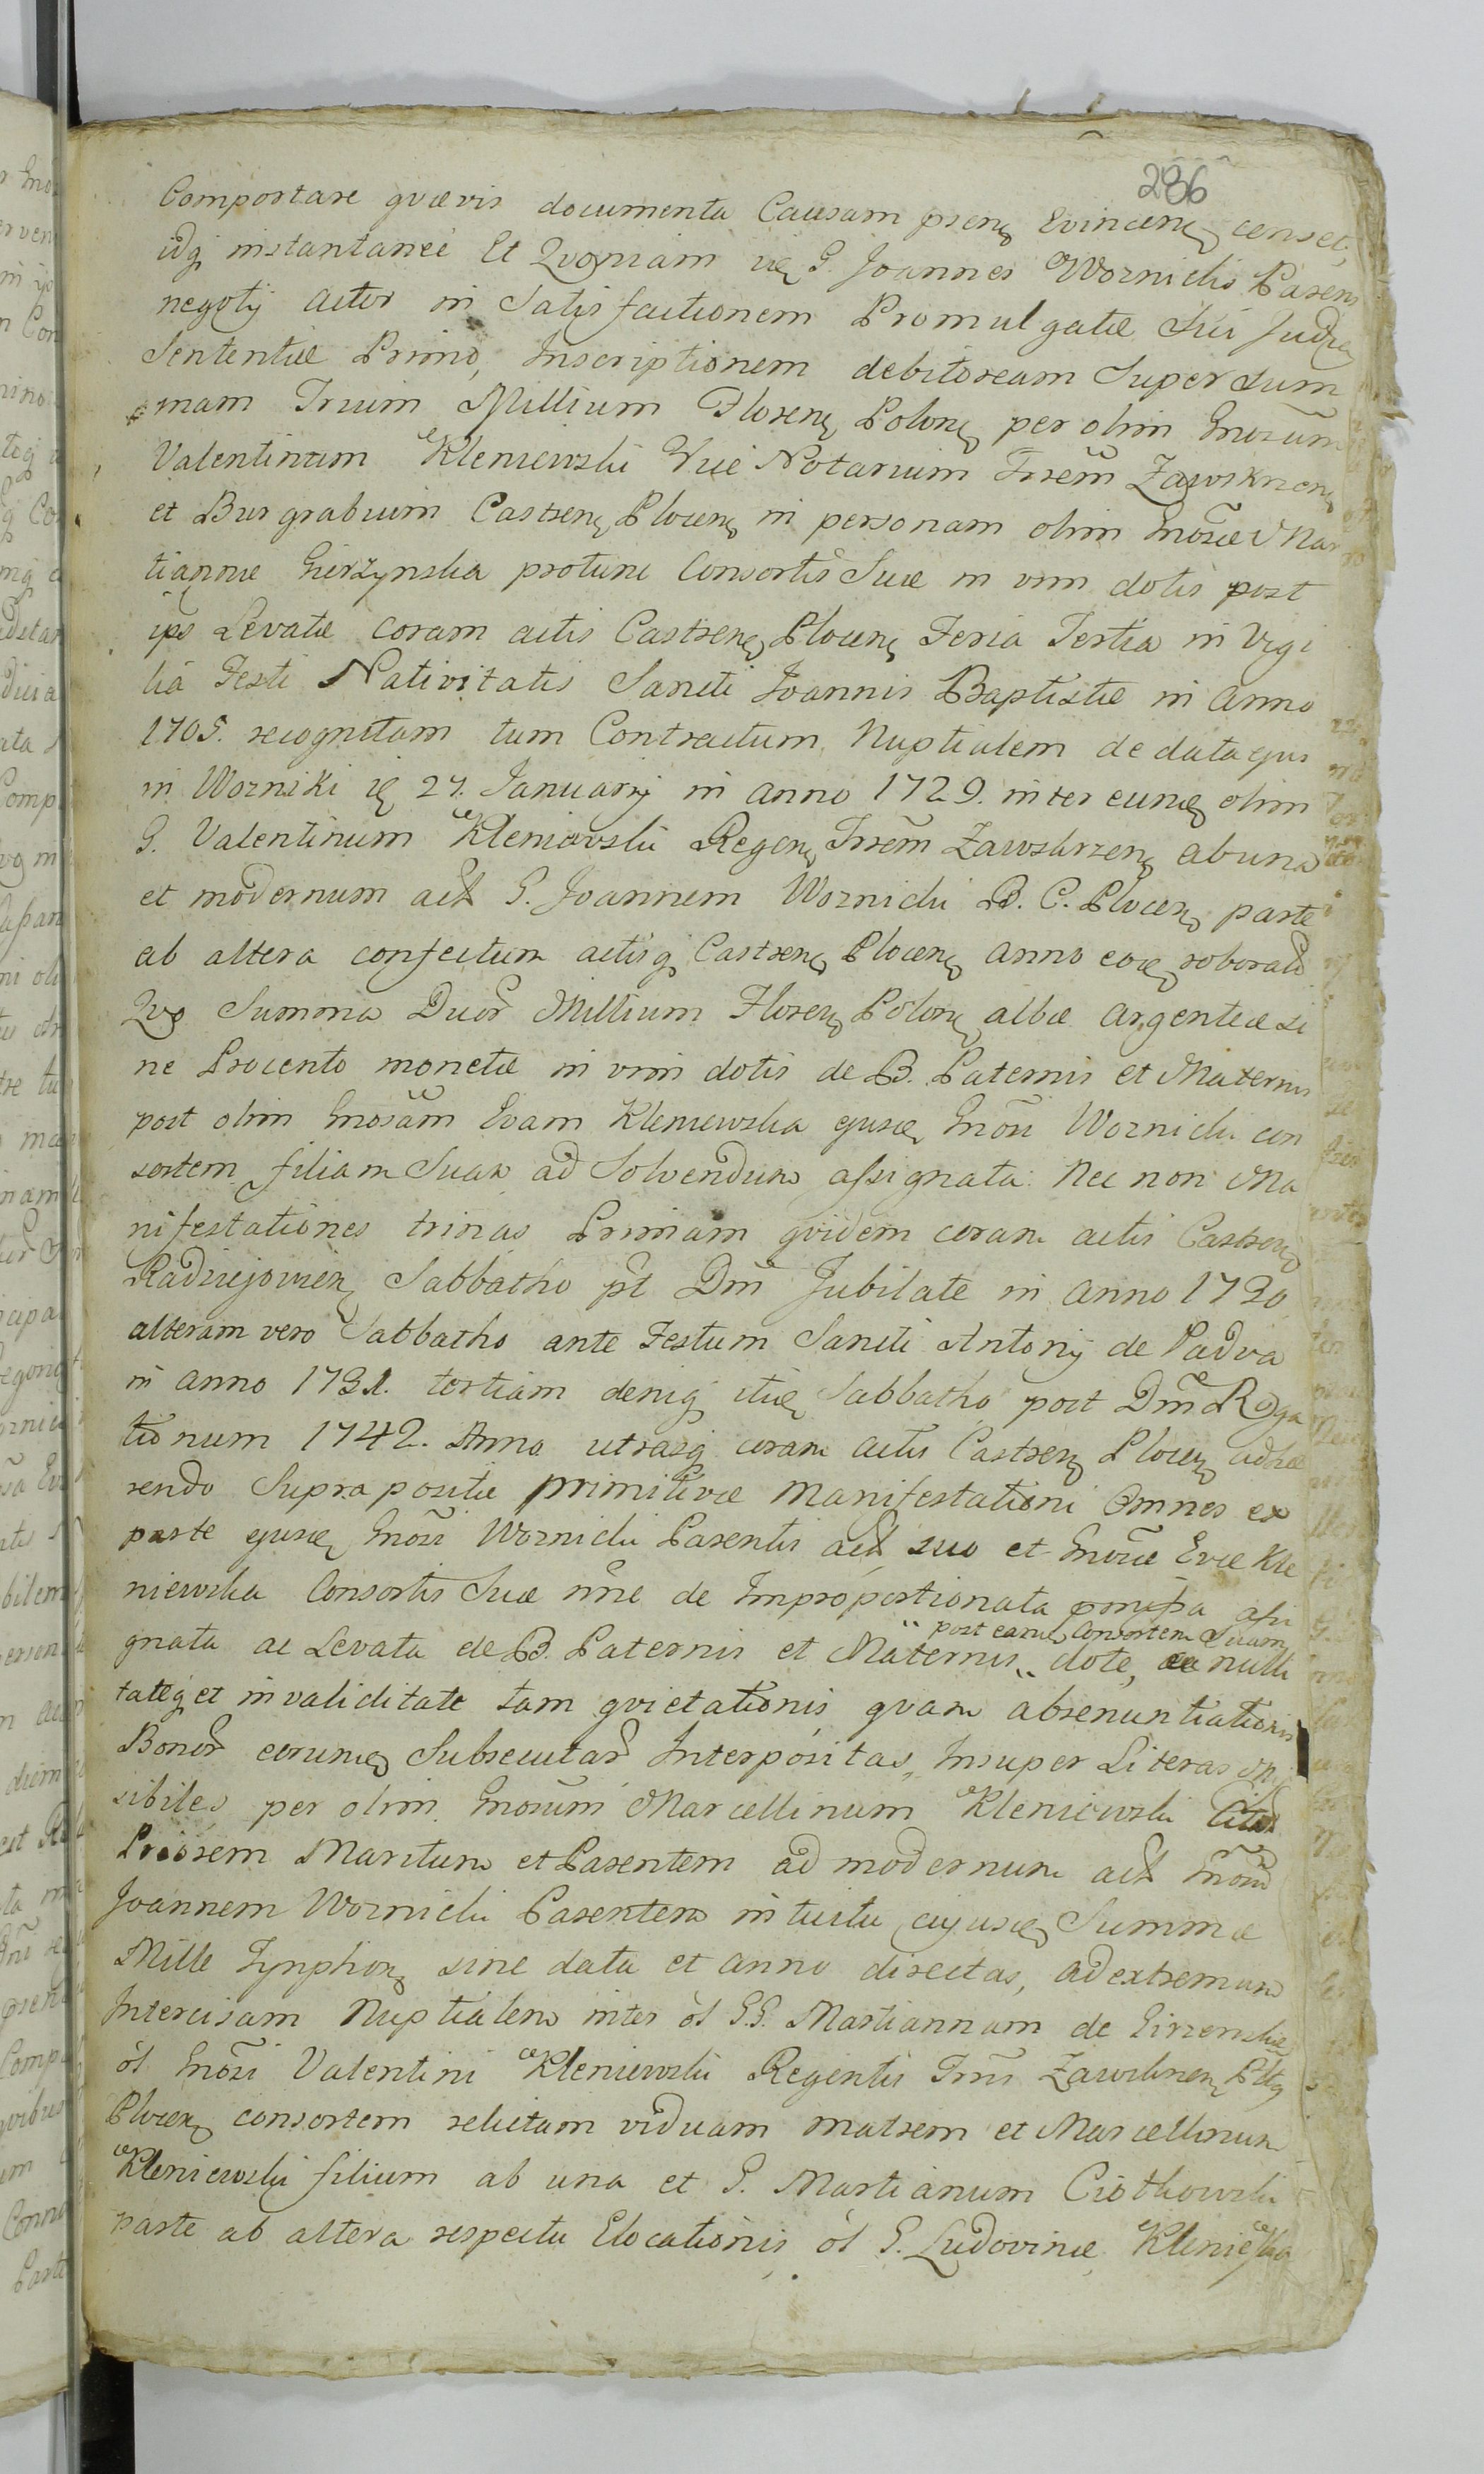 286
Comportare quævis documenta Causam psenę Evincenę censet,
idq instantanee Et Quoniam ię G. Joannes Woznicki Parens
negotij actor in Satisfactionem Promulgatæ Sui Judicę
Sententiæ Primo, Inscriptionem debitoream Super Sum
mam Trium Millium Florenę Polonę per olim Gnosum
Valentinum Kleniewski Vice Notarium Trrem Zawskrzenę
et Burgrabium Castrenę Plocenę in personam olim Gnosæ Mar
tiannæ Gierzynska protunc Consortis Suæ in vim dotis post
ips Levatæ coram actis Castrenę Plocenę Feria Tertia in Vigi
lia Festi Nativitatis Sancti Joannis Baptistæ in anno
1705. recognitam tum Contractum Nuptialem de data ejus
in Wozniki ię 27. Januarij in anno 1729. inter eundę olim
G. Valentinum Kleniowski Regenę Trrem Zawskrzenę ab una
et modernum act G. Joannem Woznicki B. C. Plocenę parte
ab altera confectum actisq Castrenę Plocenę anno eoę roborat
Quo Summa Duor Millium Florenę Polonę albæ argenteæ si
ne Procento monetæ in vim dotis de B. Paternis et Maternis
post olim Gnosam Evam Kleniewska ejusę Gnosi Woznicki con
sortem filiam Suam ad Solvendum assignata: Nec non Ma
nifestationes trinas Primam quidem coram actis Castrenę
Radziejovienę Sabbatho pt Dm Jubilate in anno 1730
alteram vero Sabbatho ante Festum Sancti Antonij de Padva
in anno 1731. tertiam deniq itię Sabbatho post Dm Roga
tionum 1742. Anno utrasq coram actis Castrenę Plocenę adhæ
rendo Supra positæ primitivæ Manifestationi Omnes ex
parte ejusę Gnosi Woznicki Parentis act suo et Gnosæ Evæ Kle
niewska Consortis Suæ nne de Improportionata assi
gnata ac Levata de B. Paternis et Maternis post eandę Consortem Suam dote, nulli
tateq et invaliditate tam quietationis quam abrenuntiationis
Bonor eorundę Subsecutar Interpositas, Insuper Literas
sibiles per olim Gnosum Marcellinum Kleniewski
Priorem Maritum et Parentem ad modernum act Gnosum
Joannem Woznicki Parentem intuitu cujusę Summæ
Mille Tynphonę sine data et anno directas, ad extremum
Intercisam Nuptialem inter ol G.G. Martiannam de Girzenskie
ol Gnosi Valentini Kleniewski Regentis Trris Zawskrzenę Pttę
Plocenę consortem relictam viduam matrem et Marcellinum
Kleniewski filium ab una et G. Martianum Ciołkowski
parte ab altera respectu Elocationis ol G. Ludovinæ Kleniewska